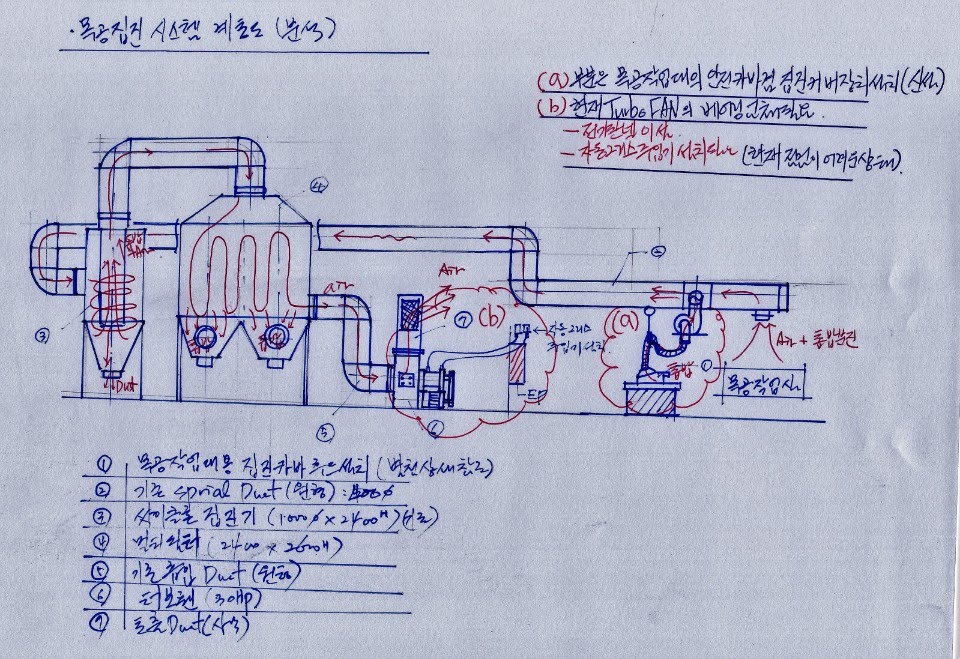 · 목공집진 시스템 계통도 (분석)
(a) 부분은 목공작업대의 안전카바겸 집진커버장치설치 (신설)
(b) 현재 Turbo FAN의 베아링 교체필요
- 전기판넬 이설
- 자동그리스 주입기 설치필요 (현재 점검이 어려운상태)
④
톱밥
air
Air
⑦
(b)
자동그리스
주입기 설치
②
(a)
Air + 톱밥분진
③
톱밥
①
목공작업실
Dust
⑤
⑥
① 목공작업대용 집진카바 후드설치 (별첨상세참조)
② 기존 sprial Duct (원형)
③ 싸이클론 집진기 (1000∮ x 2400H)
④ 멀티필터 (2400 x 2600H)
⑤ 기존 흡입 Duct (원형)
⑥ 터보팬 (30HP)
⑦ 토출Duct (사각)